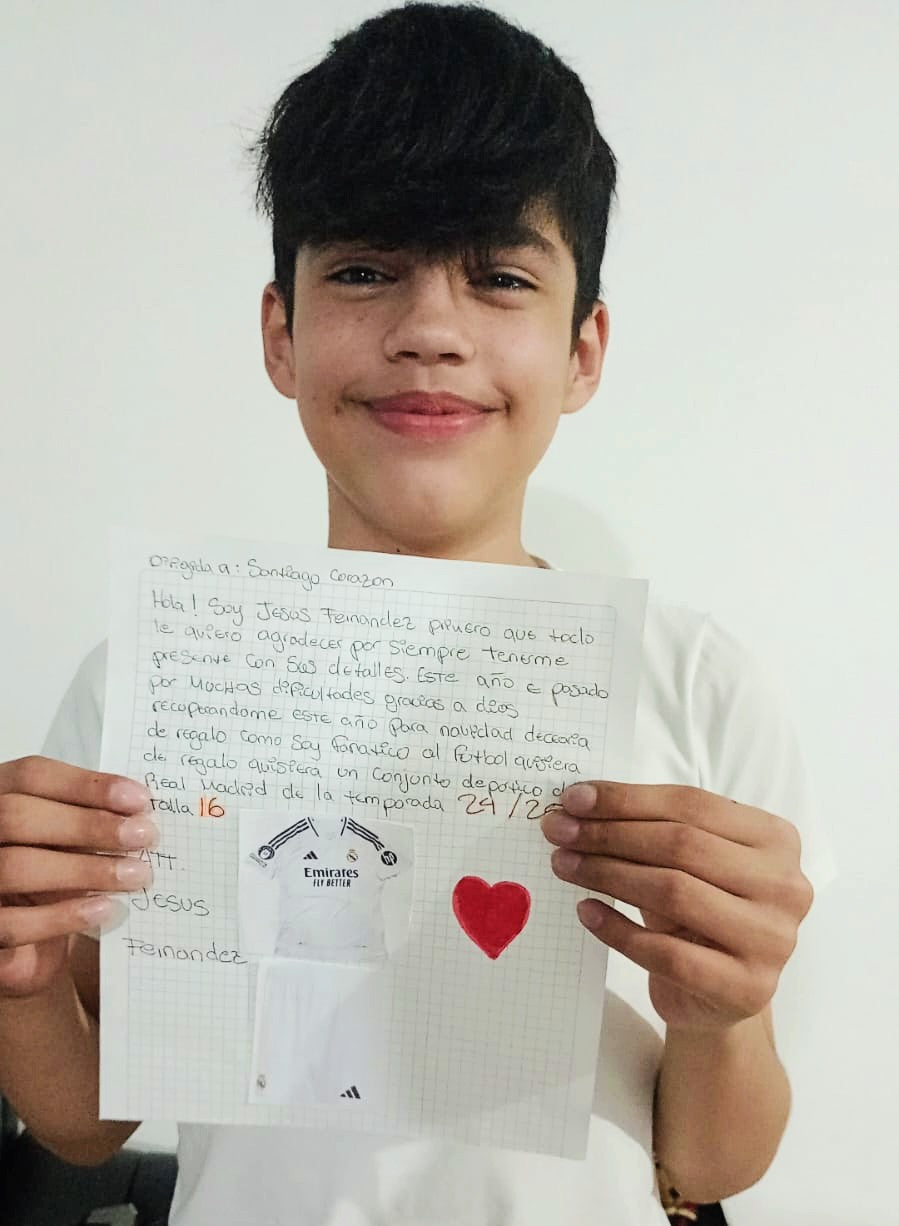 Dirigida a: Santiago Corazon
Hola! Soy Jesus Feinandez primero que todo
le quiero agradecer por siempre tenerme
presente con sus detalles. Este año e pasado
por muchas dificultades gracias a dios
recuperandome este año para navidad decearia
de regalo como soy fanatico al futbol quisiera
de regalo quisiera un conjunto deportivo d
Real Madrid de la temporada 24/2
talla 16
ATT.
Jesus
Feinandez
Emirates
FLY BETTER
hp